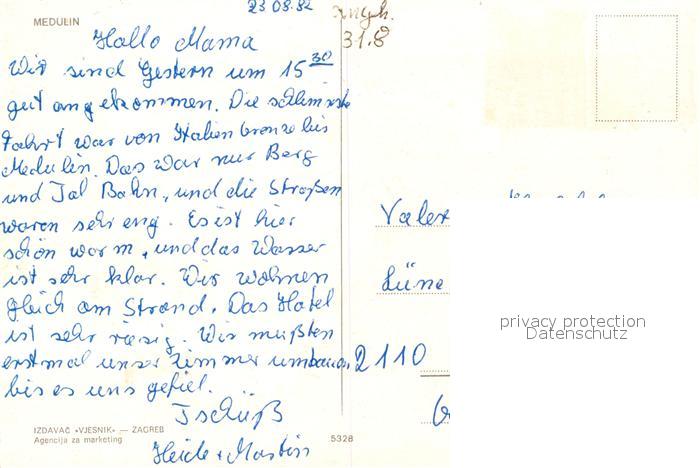 MEDULIN
23 08.82
31.8
Hallo Mama
Wir sind Gestern um 15 30
gut angekommen. Die schlimste
Fahrt war von Italien bis
Medulin. Das war nur Berg
und Tal Bahn, und die Straßen
waren sehr eng. Es ist hier
schön warm, und das Wasser
ist sehr klar. Wir wohnen
gleich am Strand. Das Hotel
ist sehr riesig. Wir mußten
erstmal unser Zimmer umbauen
bis es uns gefiel.
Tschüß
Heide + Martin
IZDAVAČ «VJESNIK» — ZAGREB
Agencija za marketing
5328
Valer
Lüne
2110
privacy protection
Datenschutz